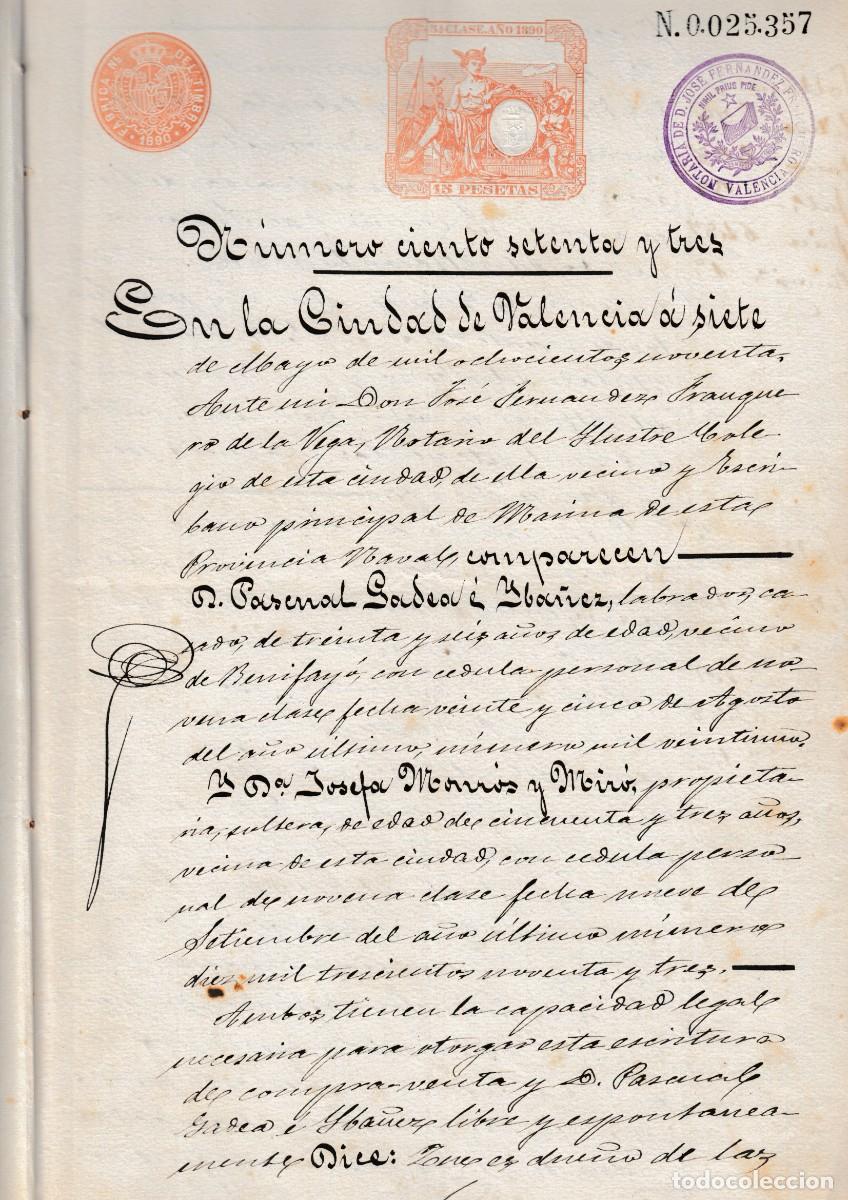 N. 0.025.357
3ª CLASE. AÑO 1890
FÁBRICA NL. DEL TIMBRE
1890
15 PESETAS
NOTARÍA DE D. JOSE FERNANDEZ FRANQUERO
NIHIL PRIUS FIDE
VALENCIA
Número ciento setenta y tres
En la Ciudad de Valencia á siete
de Mayo de mil ochocientos noventa,
Ante mi Don José Fernandez Franque
ro de la Vega, Notario del Ilustre Cole
gio de esta ciudad, de ella vecino y Escri-
bano principal de Marina de esta
Provincia Naval, comparecen
D. Pascual Gadea é Ybañez, labrador, ca-
sado, de treinta y seis años de edad, vecino
de Benifayó, con cedula personal de no-
vena clase fecha veinte y cinco de Agosto
del año último, número mil veintiuno.
Y Dª Josefa Monrós y Miró, propieta-
ria, soltera, de edad de cincuenta y tres años,
vecina de esta ciudad, con cedula perso-
nal de novena clase fecha nueve de
Setiembre del año último número
diez mil trescientos noventa y tres.
Ambos tienen la capacidad legal
necesaria para otorgar esta escritura
de compra-venta y D. Pascual
Gadea é Ybañez libre y espontanea-
mente Dice: Que es dueño de las
todocoleccion